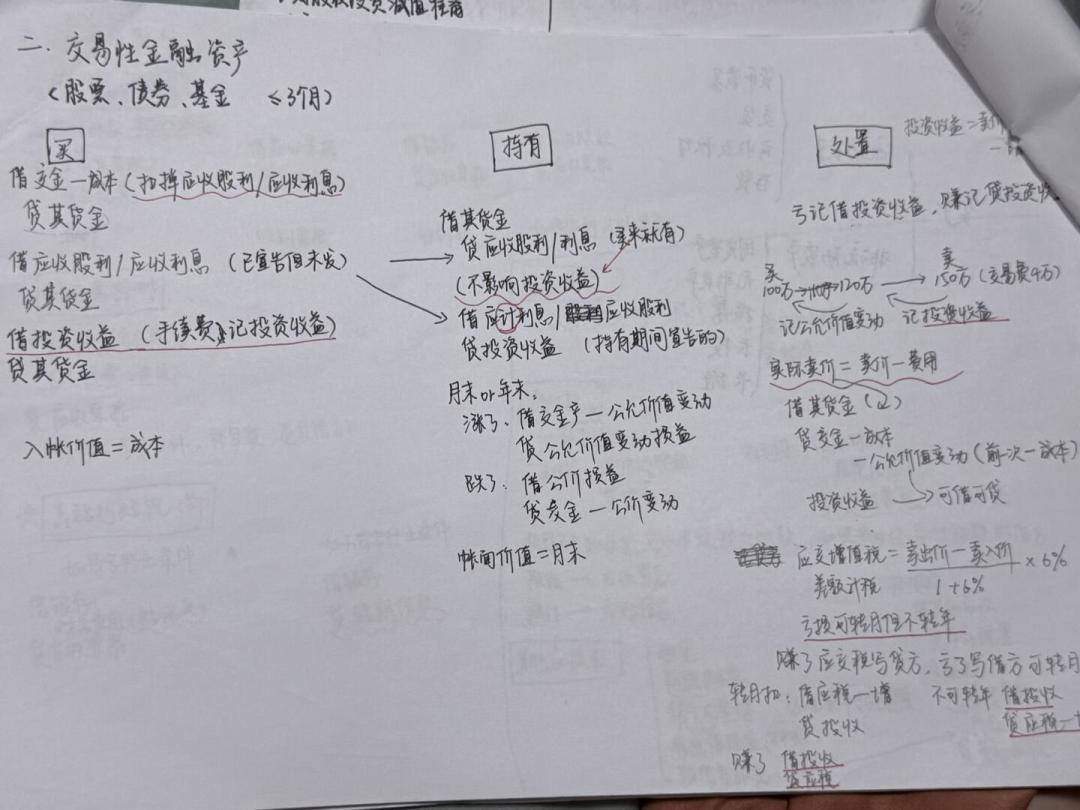 二. 交易性金融资产
(股票、债券、基金 ≤3个月)
买
借交金—成本(扣掉应收股利/应收利息)
贷其货金
借应收股利/应收利息 (已宣告但未发)
贷其货金
借投资收益 (手续费记投资收益)
贷其货金
入帐价值=成本
持有
借其货金
贷应收股利/利息 (买来就有)
(不影响投资收益)
借应计利息/应收股利
贷投资收益 (持有期间宣告的)
月末or年末:
涨了、借交金产—公允价值变动
贷公允价值变动损益
跌了、借公价损益
贷交金—公价变动
帐面价值=月末
处置
投资收益=卖价
亏记借投资收益,赚记贷投资收
买
卖
100万→120万→150万(交易费4万)
记公允价值变动 记投资收益
实际卖价=卖价—费用
借其货金(正)
贷交金—成本
—公允价值变动(前一次—成本)
投资收益→可借可贷
应交增值税=卖出价—买入价×6%
差额计税 1+6%
亏损可转月但不转年
赚了应交税写贷方,亏了写借方可转月
转月扣:借应税—增 不可转年 借投收
贷投收 贷应税—
赚了 借投收
贷应税